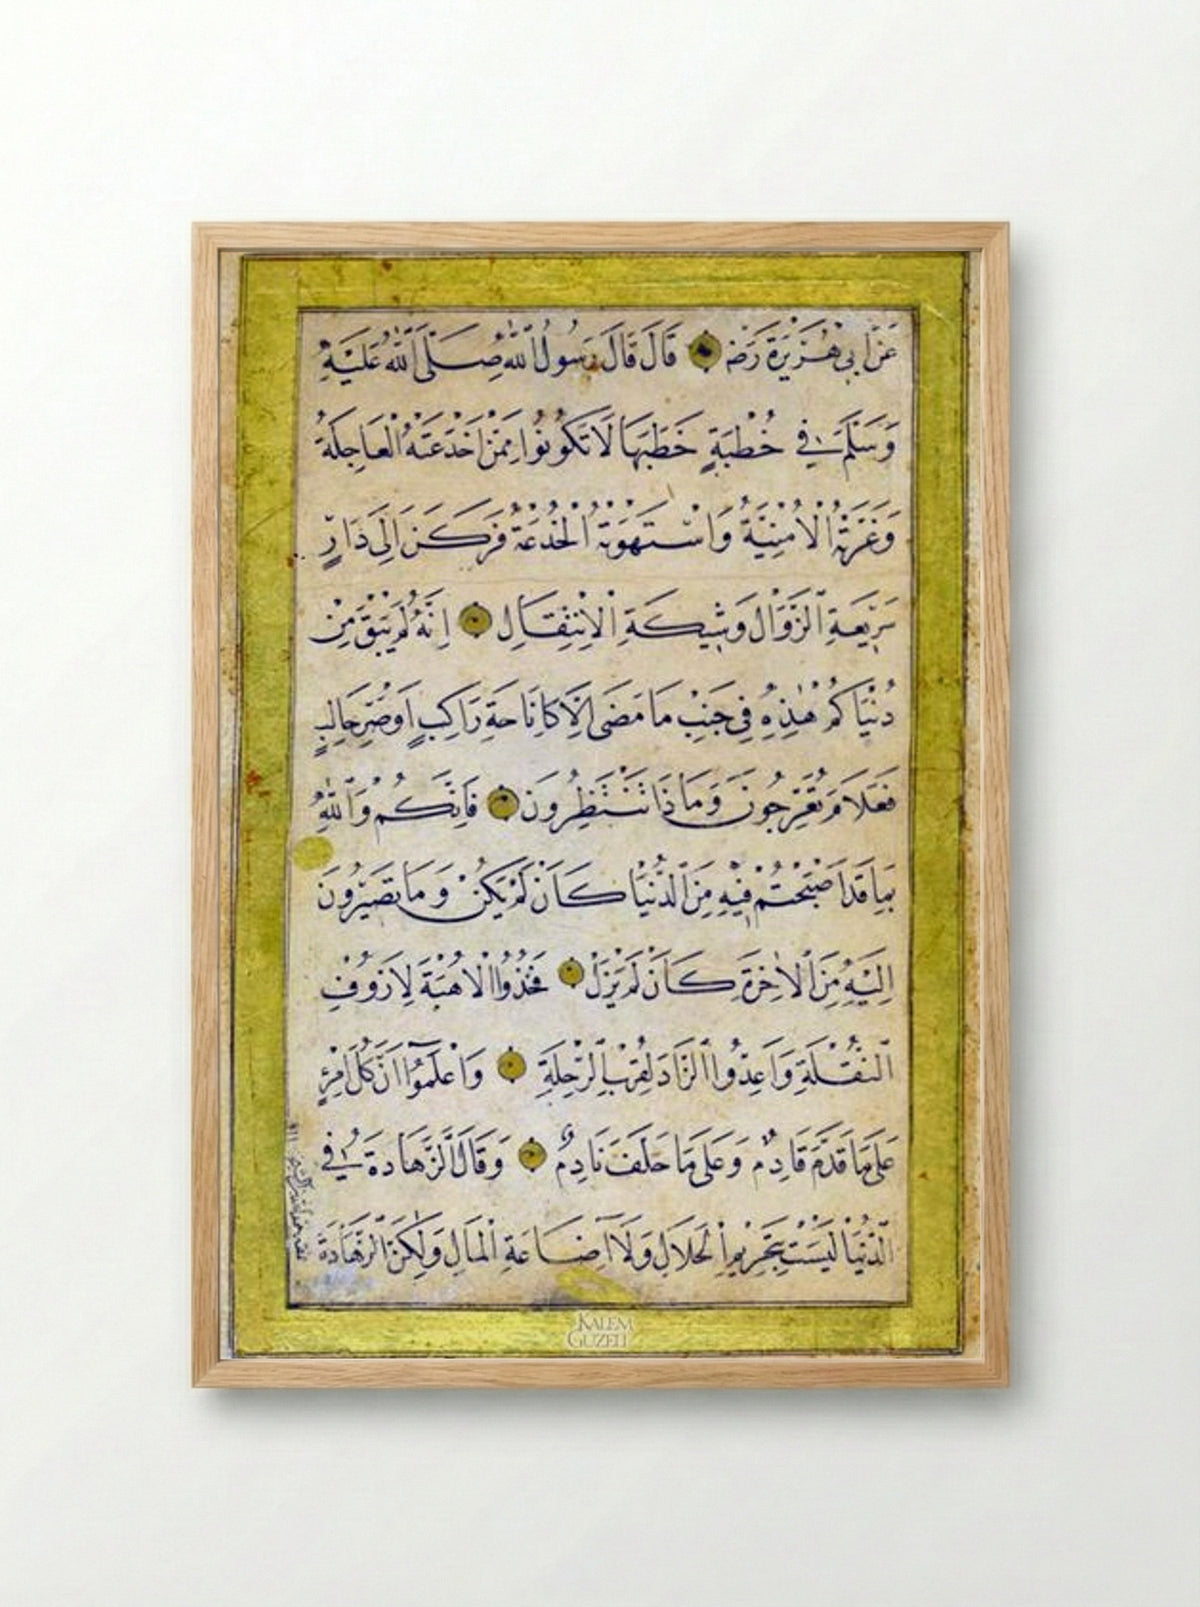 عَنْ اَبِي هُرَيْرَةَ رَضْ قَالَ قَالَ رَسُولُ اللّٰهِ صَلَّى اللّٰهُ عَلَيْهِ
وَسَلَّمَ فِي خُطْبَةٍ خَطَبَهَا لَا تَكُونُوا مِمَّنْ اخْدَعَتْهُ الْعَاجِلَةُ
وَغَرَّتْهُ الْاُمْنِيَّةُ وَاسْتَهْوَتْهُ الْخُدْعَةُ فَرَكَنَ اِلَى دَارٍ
سَرِيعَةِ الزَّوَالِ وَشِيكَةِ الْاِنْتِقَالِ اِنَّهُ لَمْ يَبْقَ مِنْ
دُنْيَاكُمْ هٰذِهِ فِي جَنْبِ مَا مَضَى اِلَّا كَاِنَاحَةِ رَاكِبٍ اَوْ صَرِّ حَالِبٍ
فَعَلَامَ تُعَرِّجُونَ وَمَاذَا تَنْتَظِرُونَ فَاِنَّكُمْ وَاللّٰهِ
بِمَا قَدْ اَصْبَحْتُمْ فِيهِ مِنَ الدُّنْيَا كَاَنْ لَمْ يَكُنْ وَمَا تَصِيرُونَ
اِلَيْهِ مِنَ الْاٰخِرَةِ كَاَنْ لَمْ يَزَلْ فَخُذُوا الْاُهْبَةَ لِاَزُوفِ
النُّقْلَةِ وَاَعِدُّوا الزَّادَ لِقُرْبِ الرِّحْلَةِ وَاعْلَمُوا اَنَّ كُلَّ امْرِئٍ
عَلَى مَا قَدَّمَ قَادِمٌ وَعَلَى مَا خَلَفَ نَادِمٌ وَقَالَ الزَّهَادَةُ فِي
الدُّنْيَا لَيْسَتْ بِتَحْرِيمِ الْحَلَالِ وَلَا اِضَاعَةِ الْمَالِ وَلٰكِنَّ الزَّهَادَةَ
KALEM
GUZELI